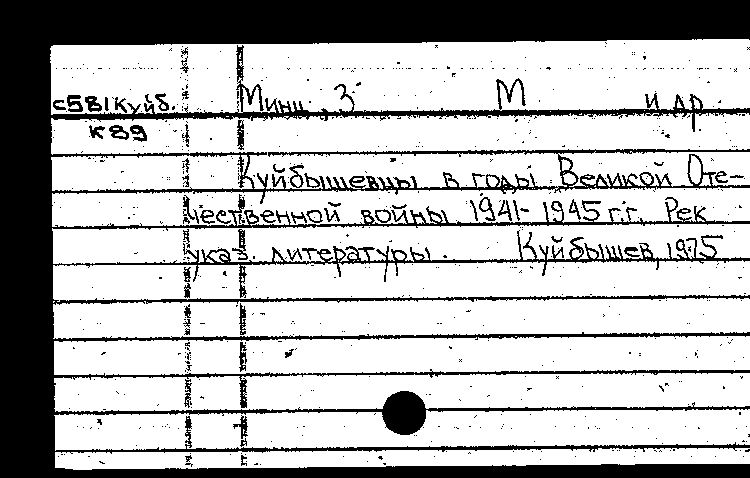 с581Куйб. Минц, З М и др
К89
Куйбышевцы в годы Великой Оте-
чественной войны 1941-1945 г.г. Рек
указ. литературы. Куйбышев, 1975